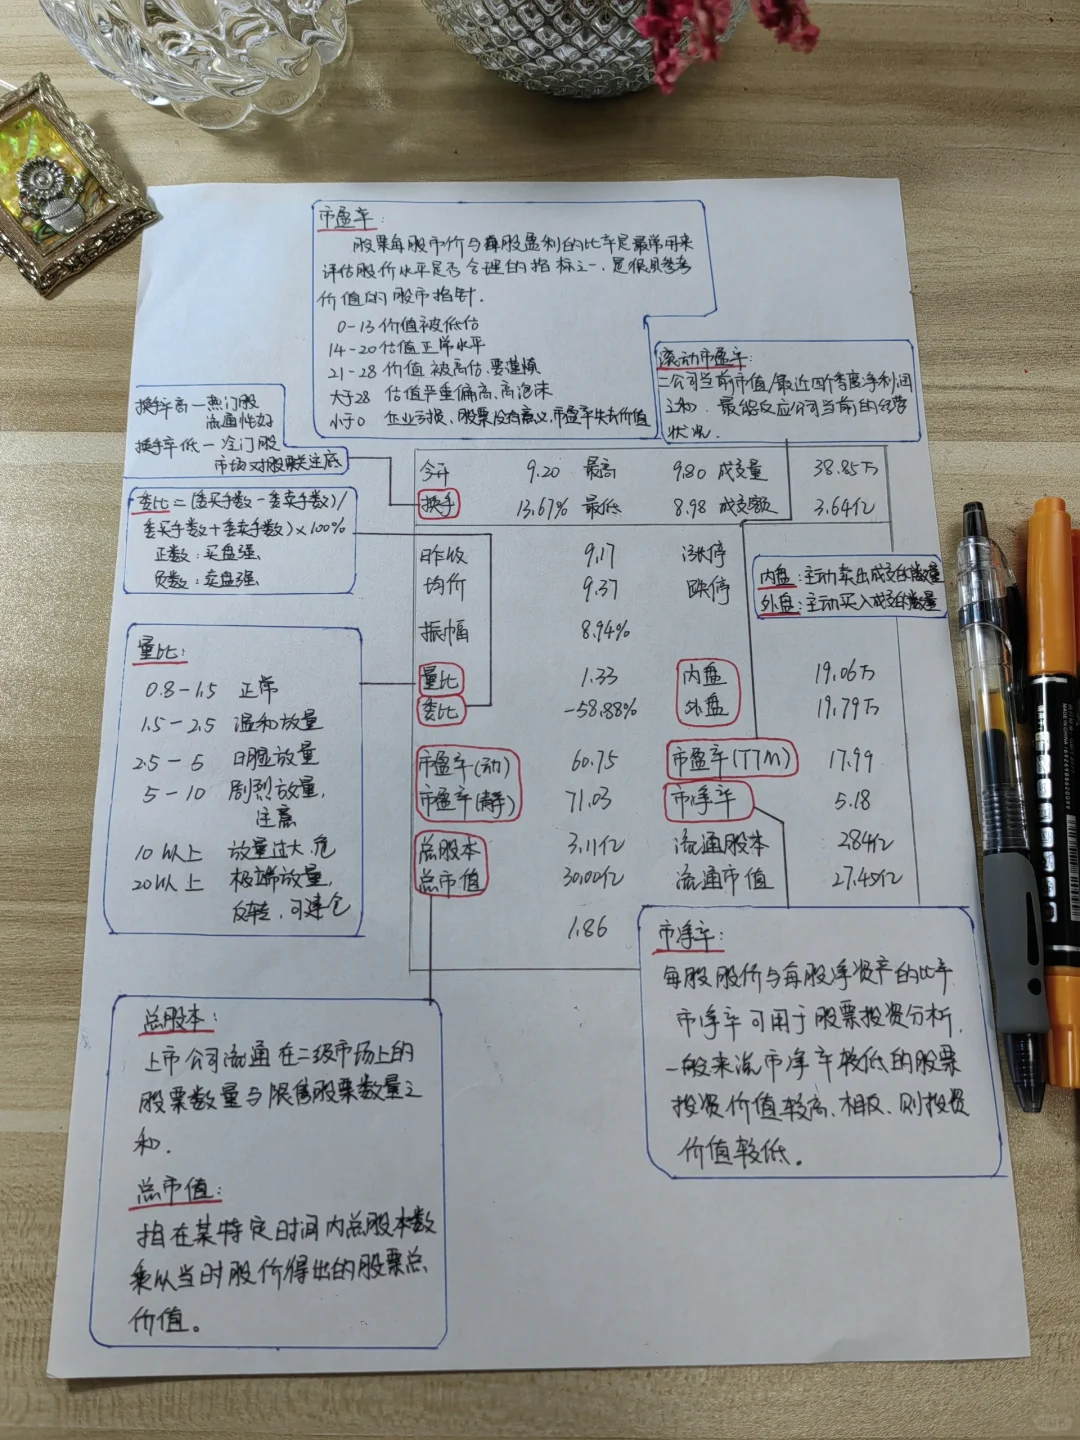 市盈率：
股票每股市价与每股盈利的比率是最常用来
评估股价水平是否合理的指标之一，是很具参考
价值的股市指针.
0-13 价值被低估
14-20 估值正常水平
21-28 价值被高估、要谨慎
大于28 估值严重偏高、高泡沫
小于0 企业亏损、股票没有意义,市盈率失去价值
滚动市盈率：
=公司当前市值/最近四个季度净利润
之和. 最能反应公司当前的经营
状况.
换手率高—热门股
流通性好
换手率低—冷门股
市场对股票关注底
委比=(委买手数-委卖手数)/
委买手数+委卖手数)×100%
正数：买盘强
负数：卖盘强
量比：
0.8-1.5 正常
1.5-2.5 温和放量
2.5-5 明显放量
5-10 剧烈放量，
注意
10以上 放量过大、危
20以上 极端放量，
反转，可建仓
今开 9.20 最高 9.80 成交量 38.85万
换手 13.67% 最低 8.98 成交额 3.64亿
昨收 9.17 涨停
均价 9.37 跌停
振幅 8.94%
内盘：主动卖出成交的数量
外盘：主动买入成交的数量
量比 1.33 内盘 19.06万
委比 -58.88% 外盘 19.79万
市盈率(动) 60.75 市盈率(TTM) 17.99
市盈率(静) 71.03 市净率 5.18
总股本 3.11亿 流通股本 2.84亿
总市值 30.00亿 流通市值 27.45亿
1.86
市净率：
每股股价与每股净资产的比率
市净率可用于股票投资分析，
一般来说市净率较低的股票
投资价值较高、相反、则投资
价值较低。
总股本：
上市公司流通在二级市场上的
股票数量与限售股票数量之
和.
总市值：
指在某特定时间内总股本数
乘以当时股价得出的股票总
价值。